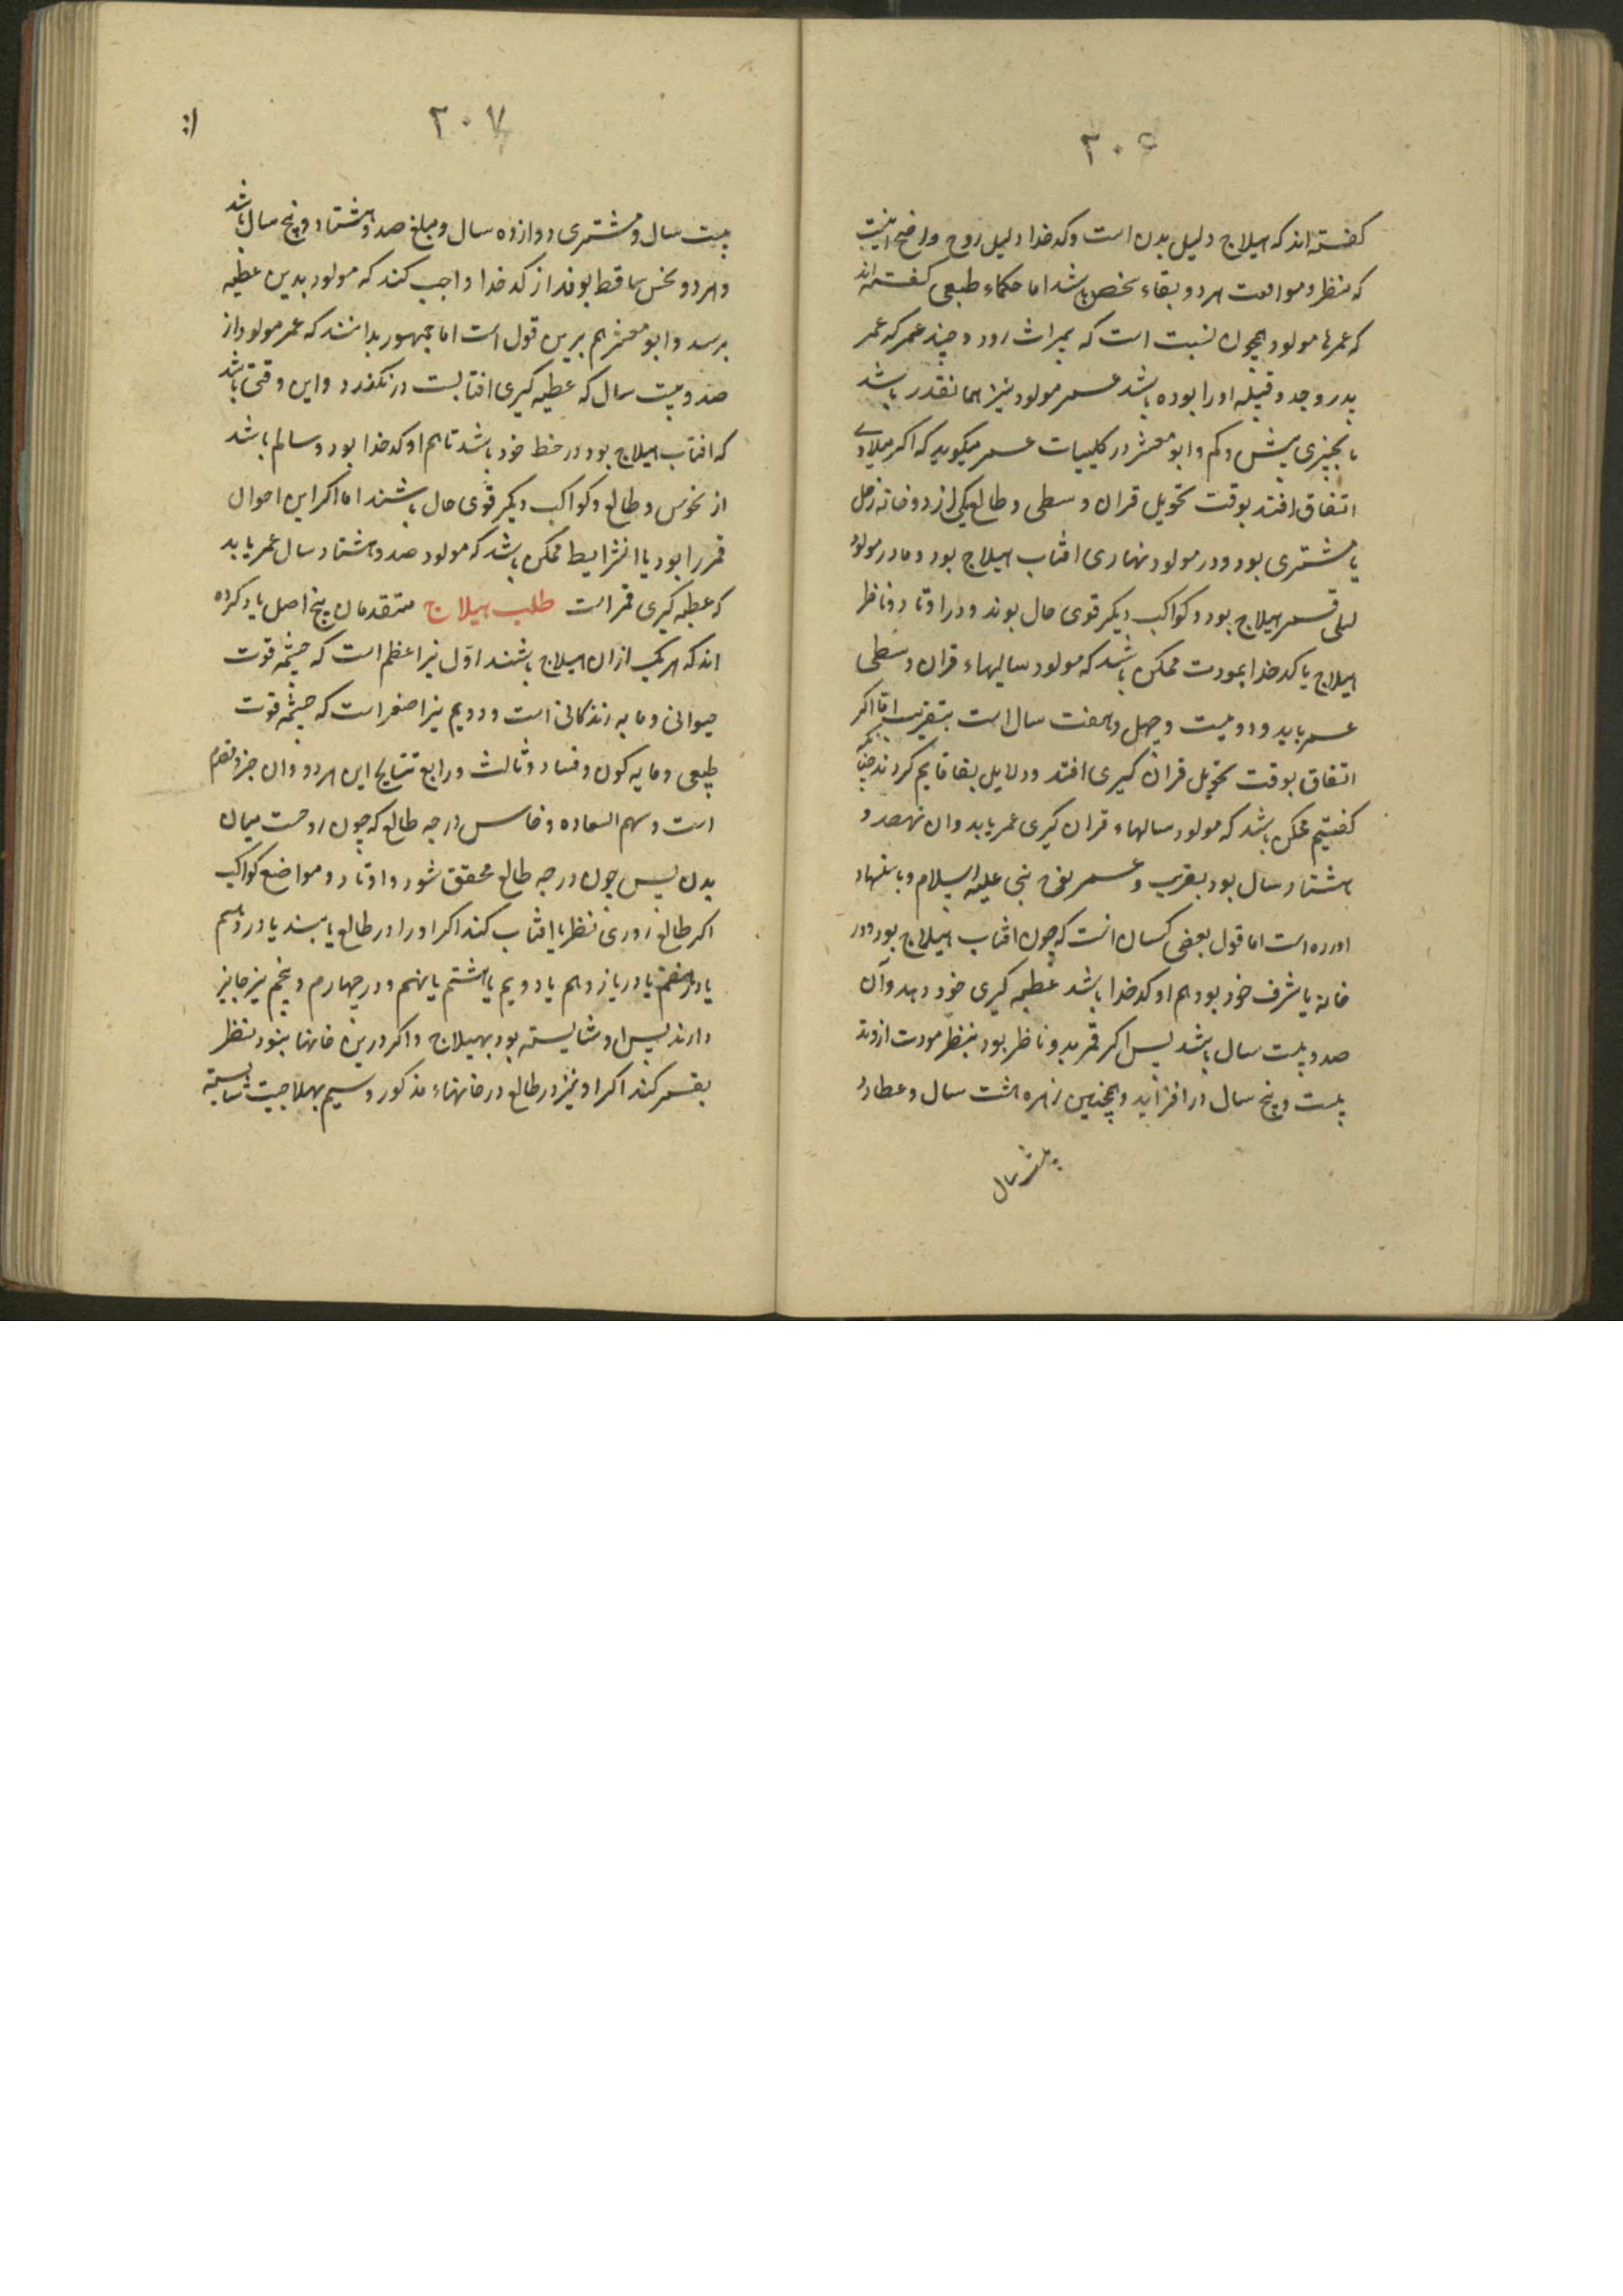 ۳۰۶
کفته‌اند که هیلاج دلیل بدن است وکدخدا دلیل روح وواضح اینست
که بنظر و موافقت هردو بقاء شخص باشد اما حکماء طبیعی کفته‌اند
که عمرها مولود همچون نسبت است که بمیراث رود و چند عمر که عمر
پدر وجد و قبیله اورا بوده باشد عمر مولود نیز همانقدر باشد
یا بچیزی بیش و کم وابو معشر در کلیات عمر میکوید که اکر میلادی
اتفاق افتد بوقت تحویل قران وسطی و طالع یکی از دو خانه زحل
یا مشتری بود ودر مولود نهاری افتاب هیلاج بود و مادر مولود
لیلی قمر هیلاج بود و کواکب دیکر قوی حال بوند ودر اوتاد وناظر
هیلاج یا کدخدا بمودت ممکن باشد که مولود سالهاء قران وسطی
عمر یابد و دویست و چهل و هفت سال است بتقریب اما اکر
اتفاق بوقت تحویل قران کبری افتد و دلایل بقا قایم کردند چنانکه
کفتیم ممکن باشد که مولود سالهاء قران کبری عمر یابد وان نهصد و
هشتاد سال بود بقریب و عمر نوح نبی علیه السلام وباشنهاد
اورده است اما قول بعضی کسان انست که چون افتاب هیلاج بود ودر
خانه یا شرف خود بود هم او کدخدا باشد عطیه کبری خود دهد وآن
صد و بیست سال باشد پس اکر قمر بدو ناظر بود بنظر مودت ازوتد
بیست و پنج سال در افزاید و همچنین زهره هشت سال و عطارد
بیست سال
۲۰۷
بیست سال و مشتری دوازده سال و مبلغ صد و هشتاد و پنج سال باشد
و هر دو نحس ساقط بوند از کدخدا واجب کند که مولود بدین عطیه
برسد و ابو معشر هم برین قول است اما جمهور بدانند که عمر مولود از
صد و بیست سال که عطیه کبری افتابست در نکذرد و این وقتی باشد
که افتاب هیلاج بود در حظ خود باشد تا هم او کدخدا بود و سالم باشد
از نحوس و طالع و کواکب دیکر قوی حال باشند اما اکر این احوال
قمر را بود با این شرایط ممکن باشد که مولود صد و هشتاد سال عمر یابد
که عطیه کبری قمر است طلب هیلاج متقدمان پنج اصل یاد کرده
اند که هر یک ازان هیلاج باشند اول نیر اعظم است که چشمه قوت
حیوانی و مایه زندکانی است و دویم نیر اصغر است که چشمه قوت
طبیعی و مایه کون و فساد وثالث ورابع نتایج این هر دو وان جزو مقدم
است و سهم السعاده وخامس درجه طالع که چون روحست میان
بدن پس چون درجه طالع محقق شود و اوتاد و مواضع کواکب
اکر طالع روزی نظر بافتاب کند اکر اورا در طالع یابند یا در دهم
یا در هفتم یا در یازدهم یا دویم یا هشتم یا نهم و در چهارم و پنجم نیز جایز
دارند پس او شایسته بود بهیلاج و اکر درین خانها نبود نظر
بقمر کند اکر او نیز در طالع ودر خانهاء مذکور وسیم بهیلاجیت شایسته